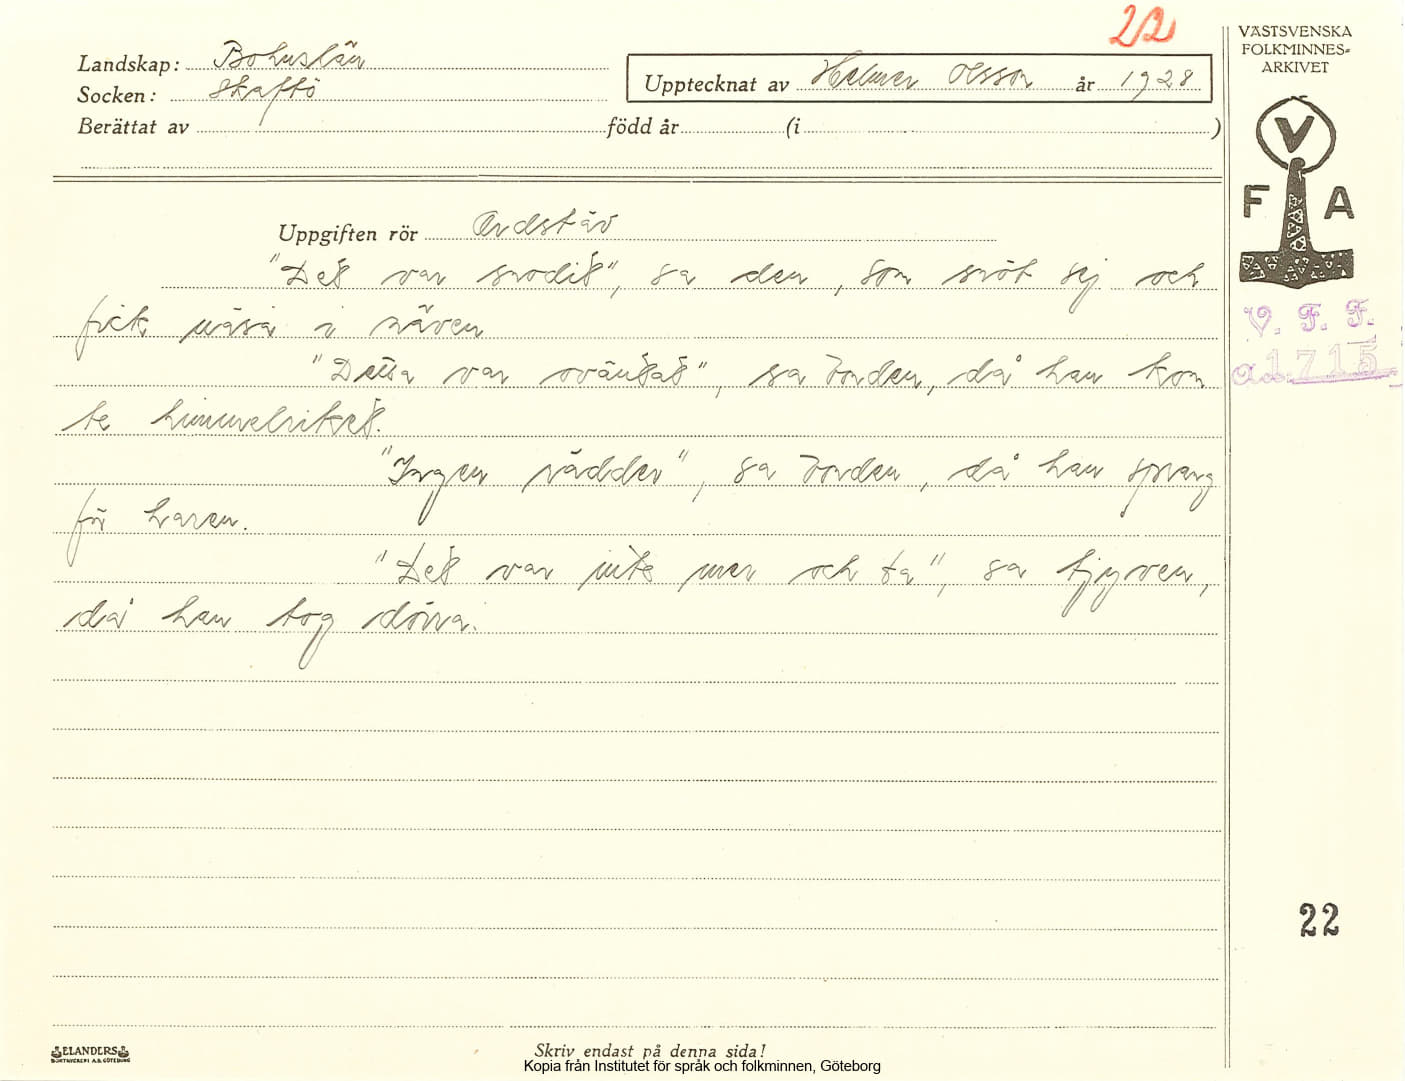 22
VÄSTSVENSKA
FOLKMINNES-
ARKIVET
Landskap: Bohuslän
Socken: Skaftö
Upptecknat av Helmer Olsson år 1928
Berättat av född år (i )
V
F A
Uppgiften rör Ordstäv
"Det var snodit", sa den, som snöt sej och
fick näsa i näven
V. F. F.
"Detta var oväntat", sa Jorden, då han kom
a.1715
te himmelriket.
"Ingen rädder", sa Jorden, då han sprang
för haren.
"Det var inte mer och ta", sa tjyven,
då han tog dörra.
22
ELANDERS
BOKTRYCKERI A.B. GÖTEBORG
Skriv endast på denna sida!
Kopia från Institutet för språk och folkminnen, Göteborg